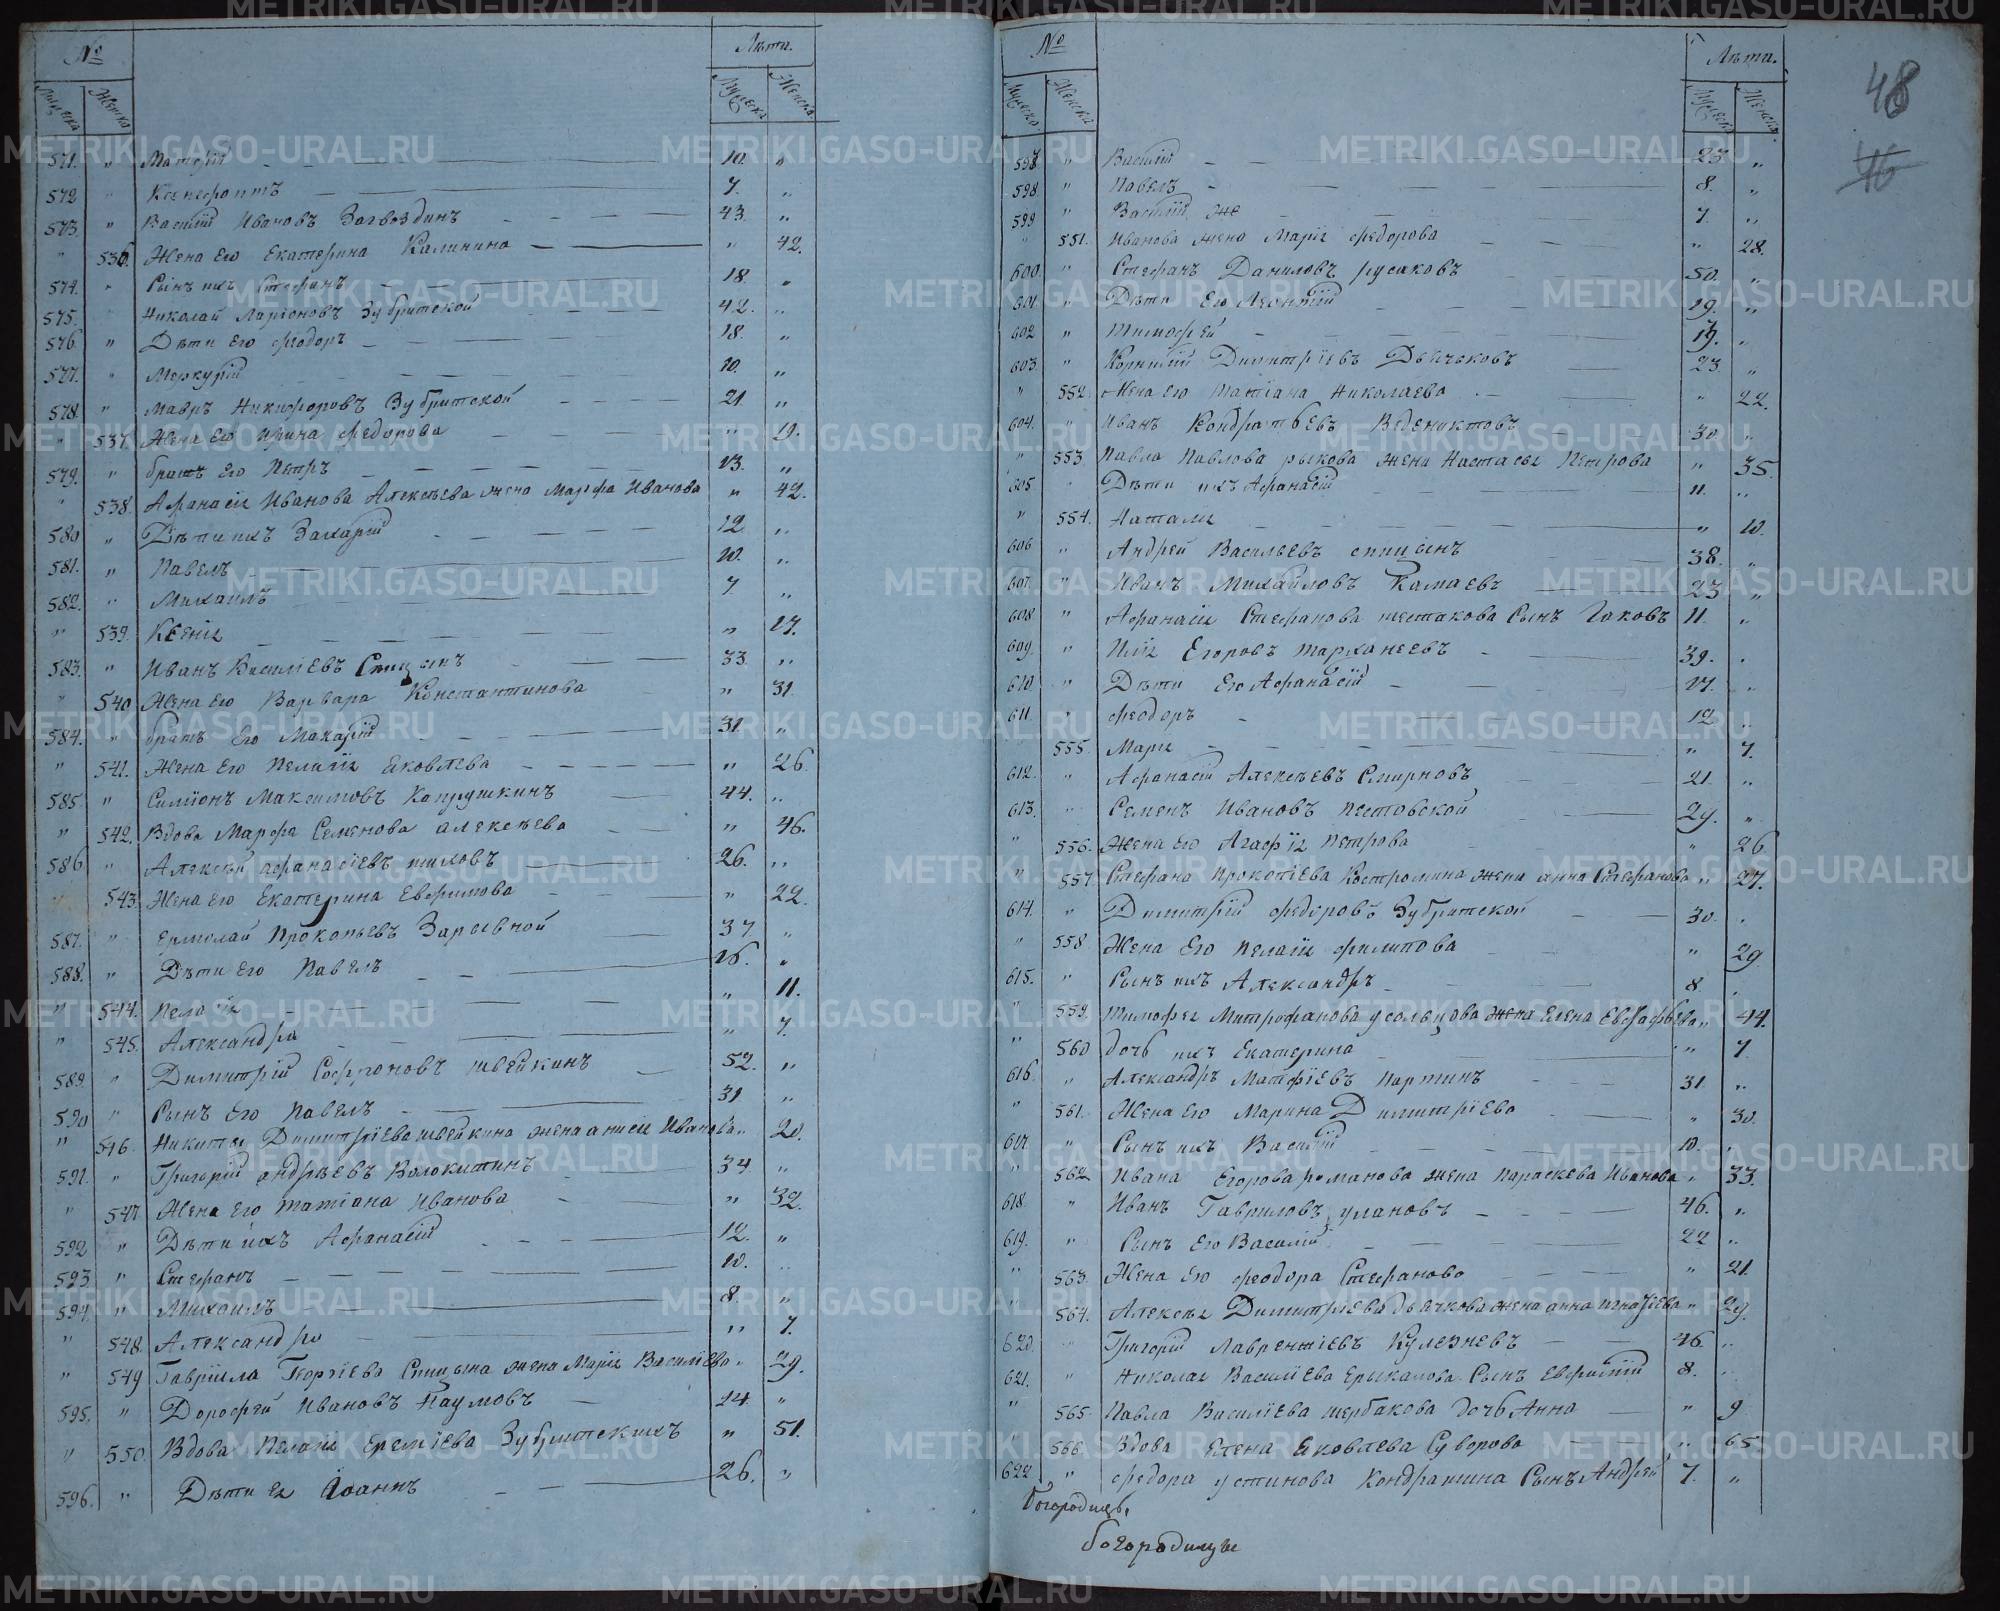 № Лѣта.
Мужска Женска Мужеска Женска
571. " Матфій 10. "
572 " Ксенофонтъ 7. "
573. " Василій Ивановъ Загвоздинъ 43. "
" 536. Жена Его Екатерина Калинина " 42.
574. " Сынъ ихъ Стефанъ 18. "
575. " Николай Ларіоновъ Зубритской 42. "
576. " Дѣти его Феодоръ 18. "
577. " Меркурій 10. "
578. " Мавръ Никифоровъ Зубритской 21 "
" 537. Жена Его Ирина Федорова " 19.
579. " братъ Его Петръ 13. "
" 538. Афанасія Иванова Алексѣева жена Марфа Иванова " 42.
580 " Дѣти ихъ Захарій 12. "
581. " Павелъ 10. "
582. " Михаилъ 7 "
" 539. Ксенія " 17.
583. " Иванъ Василіевъ Спицынъ 33. "
" 540 Жена Его Варвара Константинова " 31.
584. " братъ Его Макарій 31. "
" 541. Жена Его Пелагія Яковлева " 26.
585. " Симіонъ Максимовъ Капрушкинъ 44. "
" 542. Вдова Марфа Семенова Алексѣева " 46.
586 " Алексѣй Афанасіевъ Шиловъ 26. "
" 543. Жена Его Екатерина Евфимова " 22.
587. " Ермолай Прокопьевъ 37 "
588. " Дѣти Его Павелъ 16. "
" 544. Пелагія " 11.
" 545. Александра " 7.
589. " Димитрій Софроновъ Швейкинъ 52. "
590 " Сынъ Его Павелъ 31. "
" 546. Никиты Димитріева Швейкина жена Анисія Иванова " 20.
591. " Григорій Андрѣевъ Волокитинъ 34. "
" 547 Жена Его Татіана Иванова " 32.
592 " Дѣти ихъ Афанасій 12. "
593 " Стефанъ 10. "
594. " Михаилъ 8. "
" 548. Александра " 7.
" 549 Гавріила Георгіева Спицына жена Марія Василіева " 29.
595. " Дорофей Ивановъ Наумовъ 24. "
" 550. Вдова Пелагія Еремѣева Зубритскихъ " 51.
596. " Дѣти Ея Іоаннъ 26. "
48
46
№ Лѣта.
Мужеска Женска Мужеска Женска
597. " Василій 23. "
598. " Павелъ 8. "
599 " Василій же 7. "
" 551. Иванова жена Марія Федорова " 28.
600. " Стефанъ Даниловъ Русаковъ 50. "
601. " Дѣти Его Леонтій 19. "
602 " Тимофей 17. "
603. " Корнилій Димитріевъ Дьячковъ 23. "
" 552. Жена Его Татіана Николаева " 22.
604. " Иванъ Кондратьевъ Веденіктовъ 30. "
" 553 Павла Павлова Рыкова жена Настасья Петрова " 35.
605 " Дѣти ихъ Афанасій 11. "
" 554. Наталія " 10.
606 " Андрей Васильевъ Спицынъ 38. "
607. " Иванъ Михайловъ Камаевъ 23 "
608 " Афанасія Стефанова Шестакова Сынъ Іаковъ 11. "
609. " Илія Егоровъ Тарханеевъ 39. "
610. " Дѣти Его Афанасій 17. "
611. " Феодоръ 12 "
555. Марія " 7.
612. " Афанасій Алексѣевъ Смирновъ 21. "
613. " Семенъ Ивановъ Пестовской 29. "
" 556. Жена Его Агафія Петрова " 26.
" 557 Стефана Прокопіева Костромина жена Анна Стефанова " 27.
614. " Димитрій Федоровъ Зубритской 30. "
" 558 Жена Его Пелагія Филипова " 29
615. " Сынъ ихъ Александръ 8 "
" 559. Тимофея Митрофанова Усольцова жена Елена Евграфьева " 44.
" 560 дочь ихъ Екатерина " 7
616. " Александръ Матфіевъ Паршинъ 31. "
" 561. Жена Его Марина Димитріева " 30.
617. " Сынъ ихъ Василій 10. "
" 562 Ивана Егорова Романова жена Параскева Иванова " 33.
618. " Иванъ Гавриловъ Улановъ 46. "
619. " Сынъ Его Василій 22 "
" 563. Жена Его Феодора Стефанова " 21.
" 564. Алексѣя Димитріева Дьячкова жена Анна Игнатіева " 29.
620. " Григорій Лаврентіевъ Кулезневъ 46. "
621. " Николая Василіева Ерыкалова Сынъ Евфимій 8. "
" 565. Павла Василіева Щербакова дочь Анна " 9
" 566. Вдова Елена Яковлева Суворова " 65.
622 " Федора Устинова Кондрашина Сынъ Андрей 7. "
Богородицѣ,
богородицы
METRIKI.GASO-URAL.RU